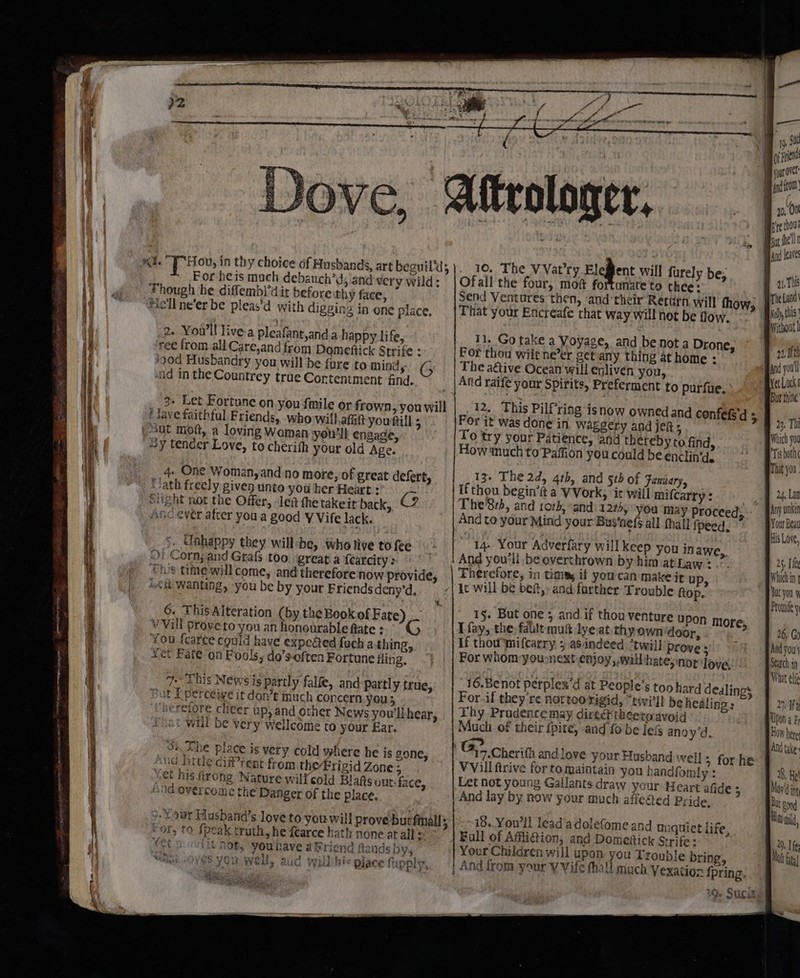 32
Dove, Astrologer.
1. THou, in thy choice of Husbands, art beguil'd;
For he is much debauch'd, and very wild:
Though he dissembl'd it before thy face,
He'll ne'er be pleas'd with digging in one place.
2. You'll live a pleasant, and a happy life,
Free from all Care, and from Domestick Strife:
Good Husbandry you will be sure to mind,
And in the Countrey true Contentment find.
3. Let Fortune on you smile or frown, you will
Have faithful Friends, who will assist you still;
But most, a loving Woman you'll engage,
By tender Love, to cherish your old Age.
4. One Woman, and no more, of great desert,
Hath freely given unto you her Heart:
Slight not the Offer, lest she take it back,
And ever after you a good VVife lack.
5. Unhappy they will be, who live to see
Of Corn, and Grass too great a scarcity:
This time will come, and therefore now provide,
Lest wanting, you be by your Friends deny'd.
6. This Alteration (by the Book of Fate)
VVill prove to you an honourable state:
You scarce could have expected such a thing,
Yet Fate on Fools, do's often Fortune fling.
7. This News is partly false, and partly true,
But I perceive it don't much concern you;
Therefore cheer up, and other News you'll hear,
That will be very wellcome to your Ear.
8. The place is very cold where he is gone,
And little diff'rent from the Frigid Zone;
Yet his strong Nature will cold Blasts out-face,
And overcome the Danger of the place.
9. Your Husband's love to you will prove but small;
For, to speak truth, he scarce hath none at all:
Yet not, you have a Friend stands by,
loves you well, and will his place supply.
10. The VVat'ry Element will surely be,
Of all the four, most fortunate to thee:
Send Ventures then, and their Return will show,
That your Encrease that way will not be slow.
11. Go take a Voyage, and be not a Drone,
For thou wilt ne'er get any thing at home:
The active Ocean will enliven you,
And raise your Spirits, Preferment to pursue.
12. This Pilf'ring is now owned and confess'd;
For it was done in waggery and jest;
To try your Patience, and thereby to find,
How much to Passion you could be enclin'd.
13. The 2d, 4th, and 5th of January,
If thou begin'st a VVork, it will miscarry:
The 8th, and 10th, and 12th, you may proceed,
And to your Mind your Bus'ness all shall speed.
14. Your Adversary will keep you in awe,
And you'll be overthrown by him at Law:
Therefore, in time, if you can make it up,
It will be best, and farther Trouble stop.
15. But one; and if thou venture upon more,
I say, the fault must lye at thy own door,
If thou miscarry; as indeed 'twill prove;
For whom you next enjoy, will hate, not love.
16. Be not perplex'd at People's too hard dealings
For if they're not too rigid, 'twill be healing:
Thy Prudence may direct thee to avoid
Much of their spite, and so be less anoy'd.
17. Cherish and love your Husband well; for he
VVill strive for to maintain you handsomly:
Let not young Gallants draw your Heart aside;
And lay by now your much affected Pride.
18. You'll lead a dolesome and unquiet life,
Full of Affliction, and Domestick Strife:
Your Children will upon you Trouble bring,
And from your VVife shall much Vexation spring.
19. Such